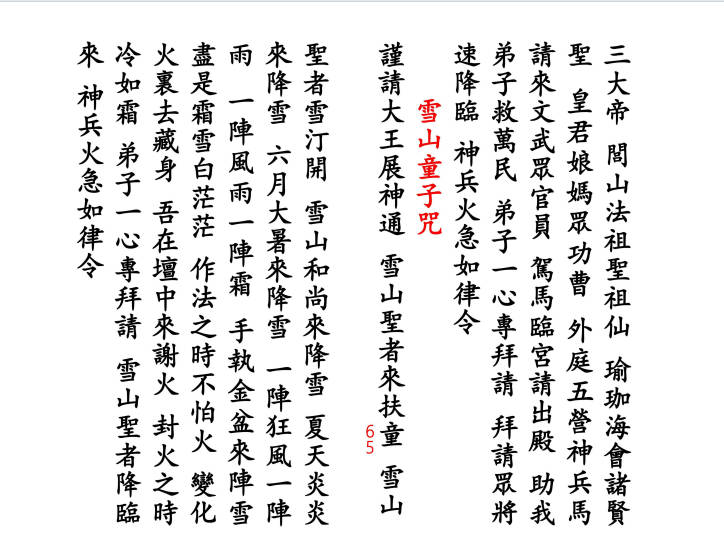 三大帝 閭山法祖聖祖仙 瑜珈海會諸賢
聖 皇君娘媽眾功曹 外庭五營神兵馬
請來文武眾官員 駕馬臨宮請出殿 助我
弟子救萬民 弟子一心專拜請 拜請眾將
速降臨 神兵火急如律令
雪山童子咒
謹請大王展神通 雪山聖者來扶童 雪山
65
聖者雪汀開 雪山和尚來降雪 夏天炎炎
來降雪 六月大暑來降雪 一陣狂風一陣
雨 一陣風雨一陣霜 手執金盆來陣雪
盡是霜雪白茫茫 作法之時不怕火 變化
火裏去藏身 吾在壇中來謝火 封火之時
冷如霜 弟子一心專拜請 雪山聖者降臨
來 神兵火急如律令